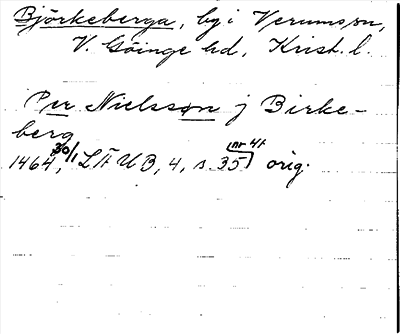 Björkeberga, by i Verums sn,
V. Göinge hd, Krist. l.
Per Nielsson j Birke-
berg
1464 30/1, LÄUB, 4, s. 35 (nr 41) orig.